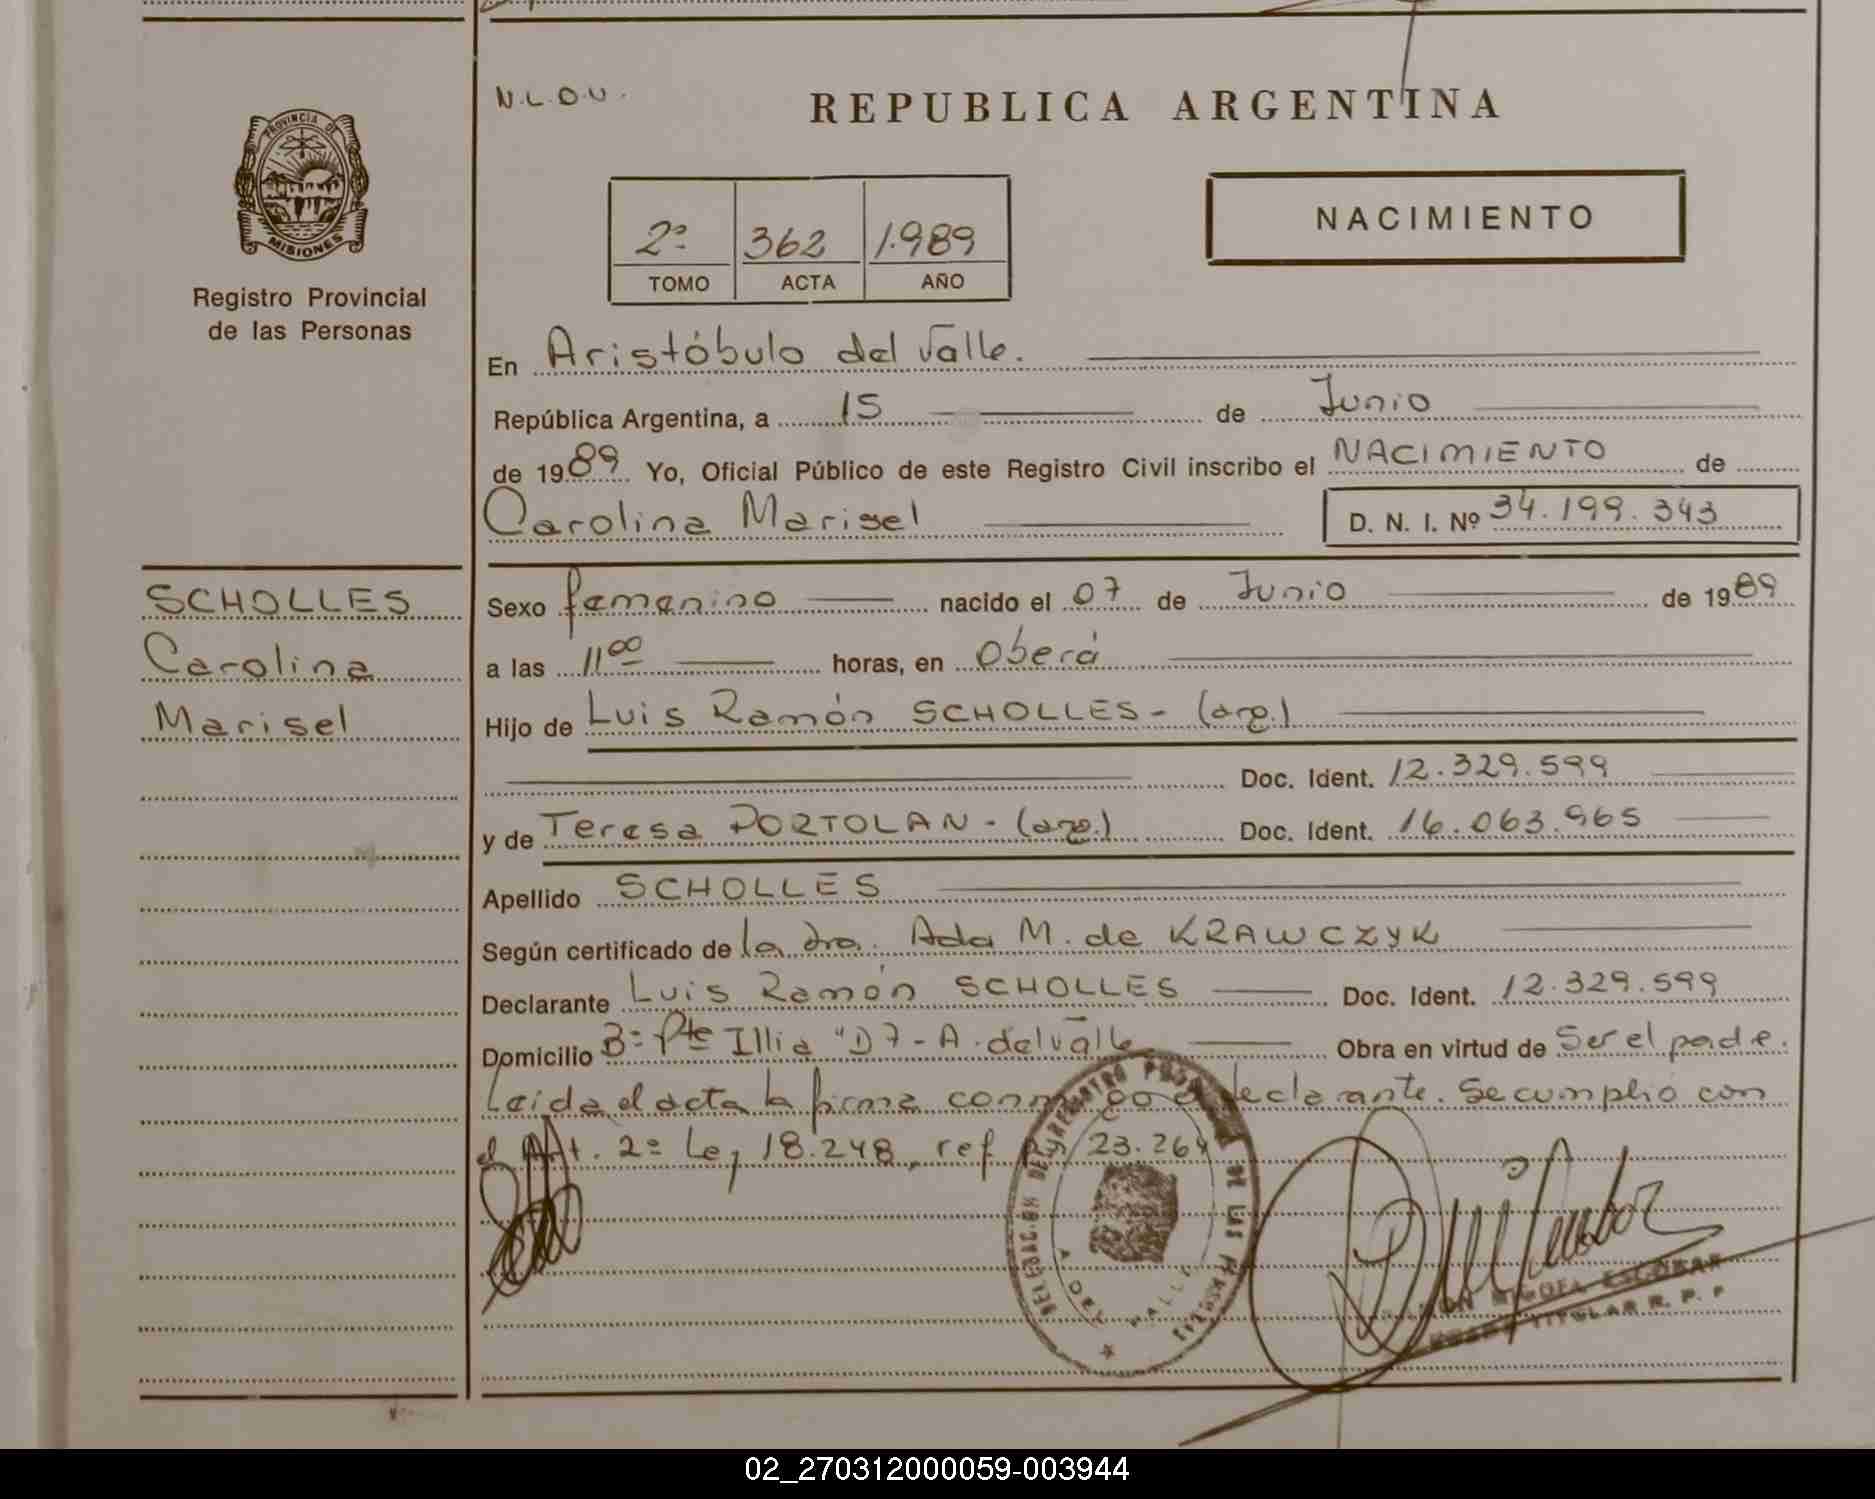 N.L.O.U.
REPUBLICA ARGENTINA
PROVINCIA DE
MISIONES
Registro Provincial
de las Personas
NACIMIENTO
2º 362 1.989
TOMO ACTA AÑO
En Aristóbulo del Valle.
República Argentina, a 15 de Junio
de 1989 Yo, Oficial Público de este Registro Civil inscribo el NACIMIENTO de
Carolina Marisel D. N. I. Nº 34.199.343
SCHOLLES
Carolina
Marisel
Sexo femenino nacido el 07 de Junio de 1989
a las 11 00 horas, en Oberá
Hijo de Luis Ramón SCHOLLES - (arg.)
Doc. Ident. 12.329.599
y de Teresa PORTOLAN - (arg.) Doc. Ident. 16.063.965
Apellido SCHOLLES
Según certificado de la dra. Ada M. de KRAWCZYK
Declarante Luis Ramón SCHOLLES Doc. Ident. 12.329.599
Domicilio Bº Pte Illia "D7 - A. del Valle Obra en virtud de Ser el padre.
Leida el acta la firma conmigo el declarante. Se cumplió con
el Art. 2º Ley 18.248, ref por 23.264
DELEGACIÓN DEL REGISTRO DE LAS PERSONAS
A. DEL VALLE
ESCOBAR
TITULAR R. P. P.
02_270312000059-003944